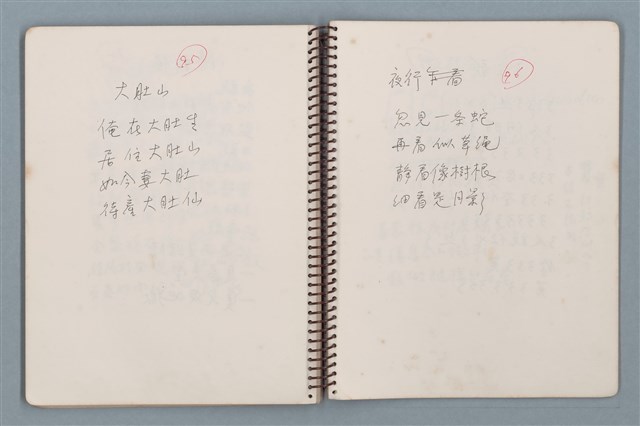 95
大肚山
俺在大肚生
居住大肚山
如今妻大肚
待產大肚仙
96
夜行
忽見一条蛇
再看似草繩
靜看像樹根
细看是月影